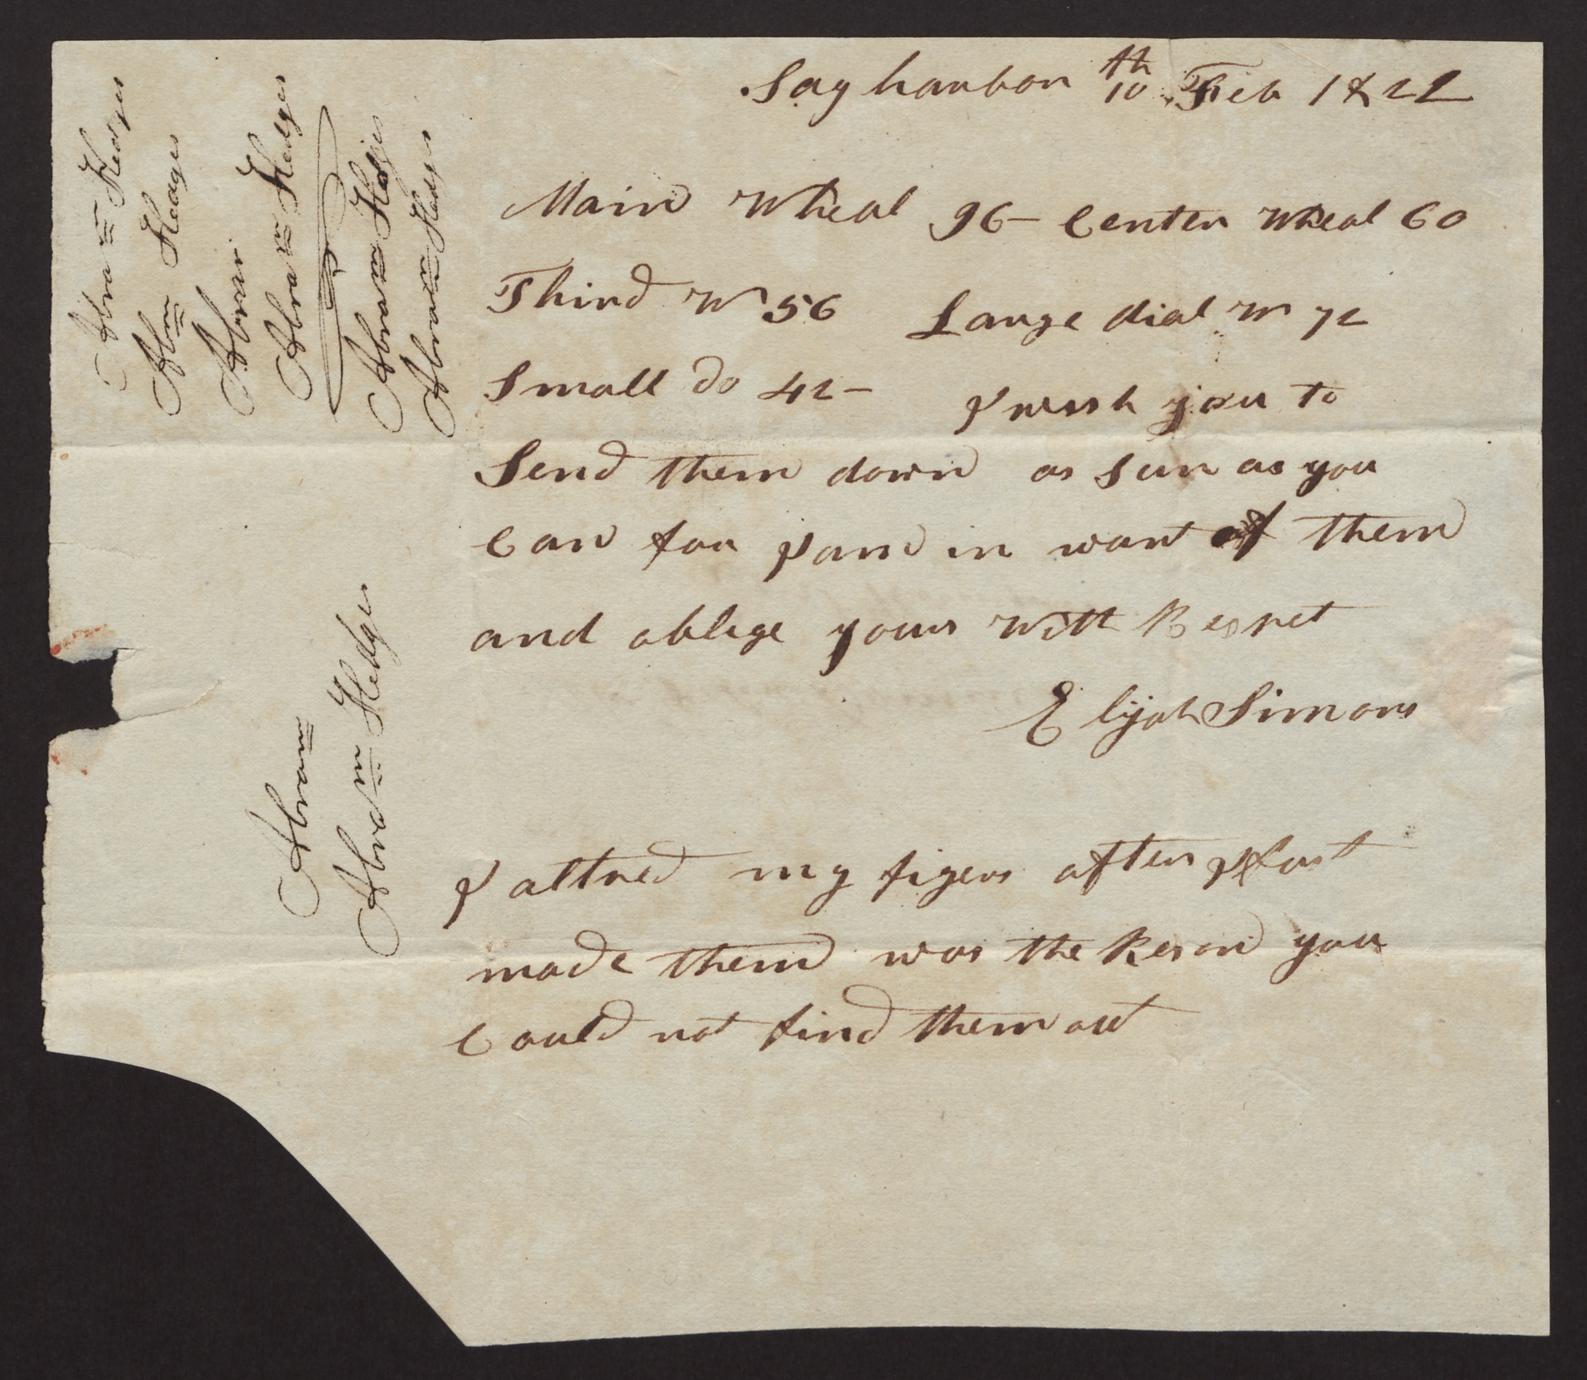 Sag harbor 10th Feb 1822
Main Wheal 96 - Center Wheal 60
Third W 56 Large dial W 72
Small do 42 - I wish you to
Send them down as sun as you
Can for I am in want of them
and oblige yours With Respet
Elijah Simons
I altred my figers after I fust
made them was the Reson you
Could not find them out
Abram Hedges
Abm Hedges
Abram
Abram Hedges
Abram Hedges
Abram Hedges
Abram
Abram Hedges